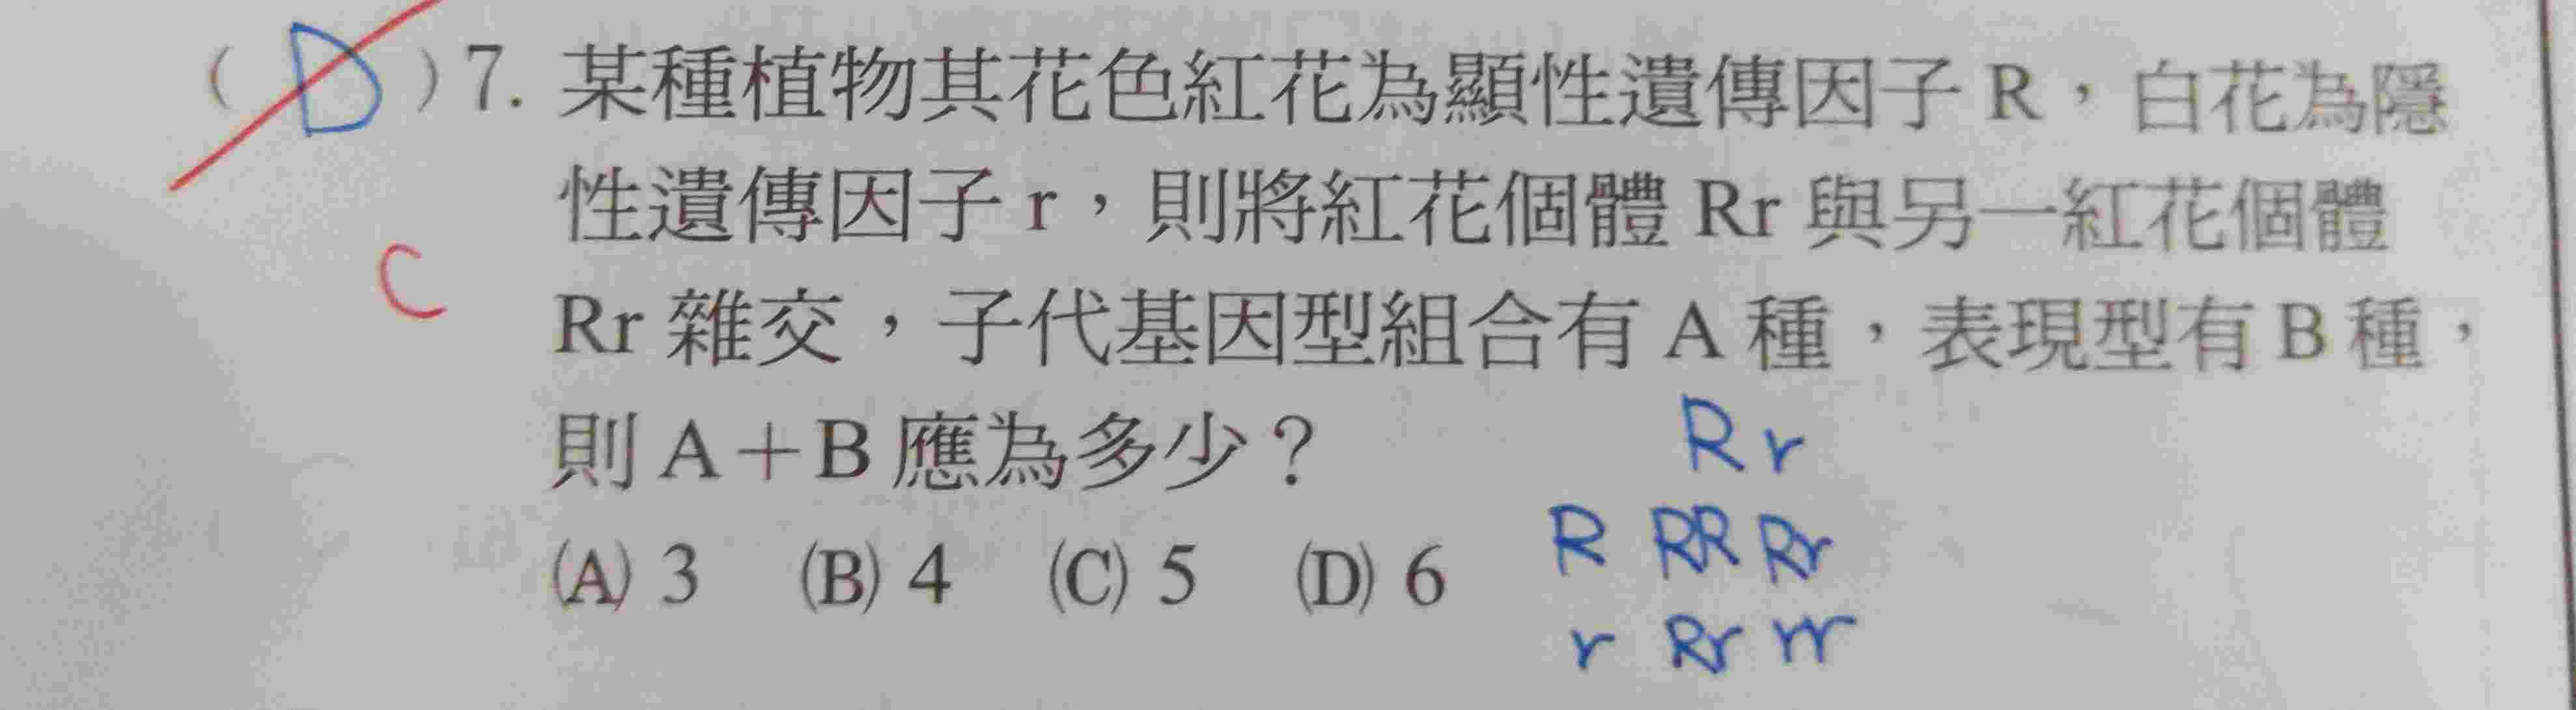 ( D ) 7. 某種植物其花色紅花為顯性遺傳因子 R，白花為隱
性遺傳因子 r，則將紅花個體 Rr 與另一紅花個體
C
Rr 雜交，子代基因型組合有 A 種，表現型有 B 種，
則 A＋B 應為多少？
R r
(A) 3 (B) 4 (C) 5 (D) 6
R RR Rr
r Rr rr